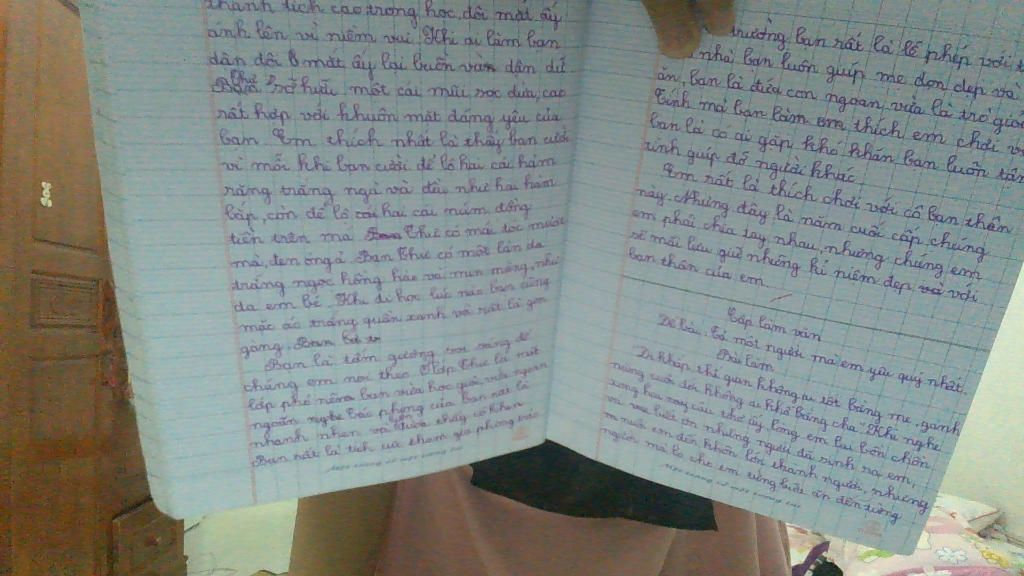 thành tích cao trong học, đôi mắt ấy
ánh lên vẻ niềm vui. Khi ai làm bạn
dận dỗi mắt ấy lại buồn và dận dữ
Thư sở hữu một cái mũi sọc dừa, cao
rất hợp với khuôn mặt đáng yêu của
bạn. Em thích nhất là thấy bạn cười
vì mỗi khi bạn cười để lộ hai cái hàm
răng trắng ngà và đều như hai hàm
bắp, còn để lộ cái hai cái núm đồng
tiền trên má. Thư có mái tóc mượt
mà, đen óng ả. Bạn Thư có một làn da
trắng ngọc hồng hào và mịn màng, như
da em bé. Khi đi học lúc nào bạn cũng
mặc áo trắng quần xanh và rất là gọn
gàng.
Bạn là tấm gương soi sáng để
chúng em noi theo. Ở lớp Thư là một
lớp phó nên bạn vừa học giỏi, vừa ngoan
ngoãn nghe tác phong của bạn rất là
nhanh nhẹn và thấy cô khen
Bạn rất là tích cực tham gia phong trào
trường bạn rất là lễ phép với
nhà bạn luôn giúp mẹ dọn dẹp và
ăn, bạn là đứa con ngoan, vừa là trò giỏi
Tính mà bạn làm em thích em chơi v
bạn là có ai gặp khó khăn bạn luôn tận
tình giúp đỡ người khác.
Em rất là thích chơi với cô bạn thân
này. Nhưng đây là năm cuối cấp, chúng
em phải chia tay nhau, nhưng chúng em
sẽ mãi lưu giữ những kỉ niệm đẹp với
bạn thân của em
Tập làm văn
Đề bài: Tả một người mà em yêu quý nhất.
Bài làm
"Đi khắp thế gian không ai tốt bằng mẹ, gánh
nặng cuộc đời không ai khổ bằng cha". Khi nghe
xong hai câu thơ ấy, lòng em lại bồn chồn
và vô biết ơn những người đã sinh ra em,
nuôi em đến khôn lớn thành người, nhưng
người mà lo cho em từng bước ăn đến từng